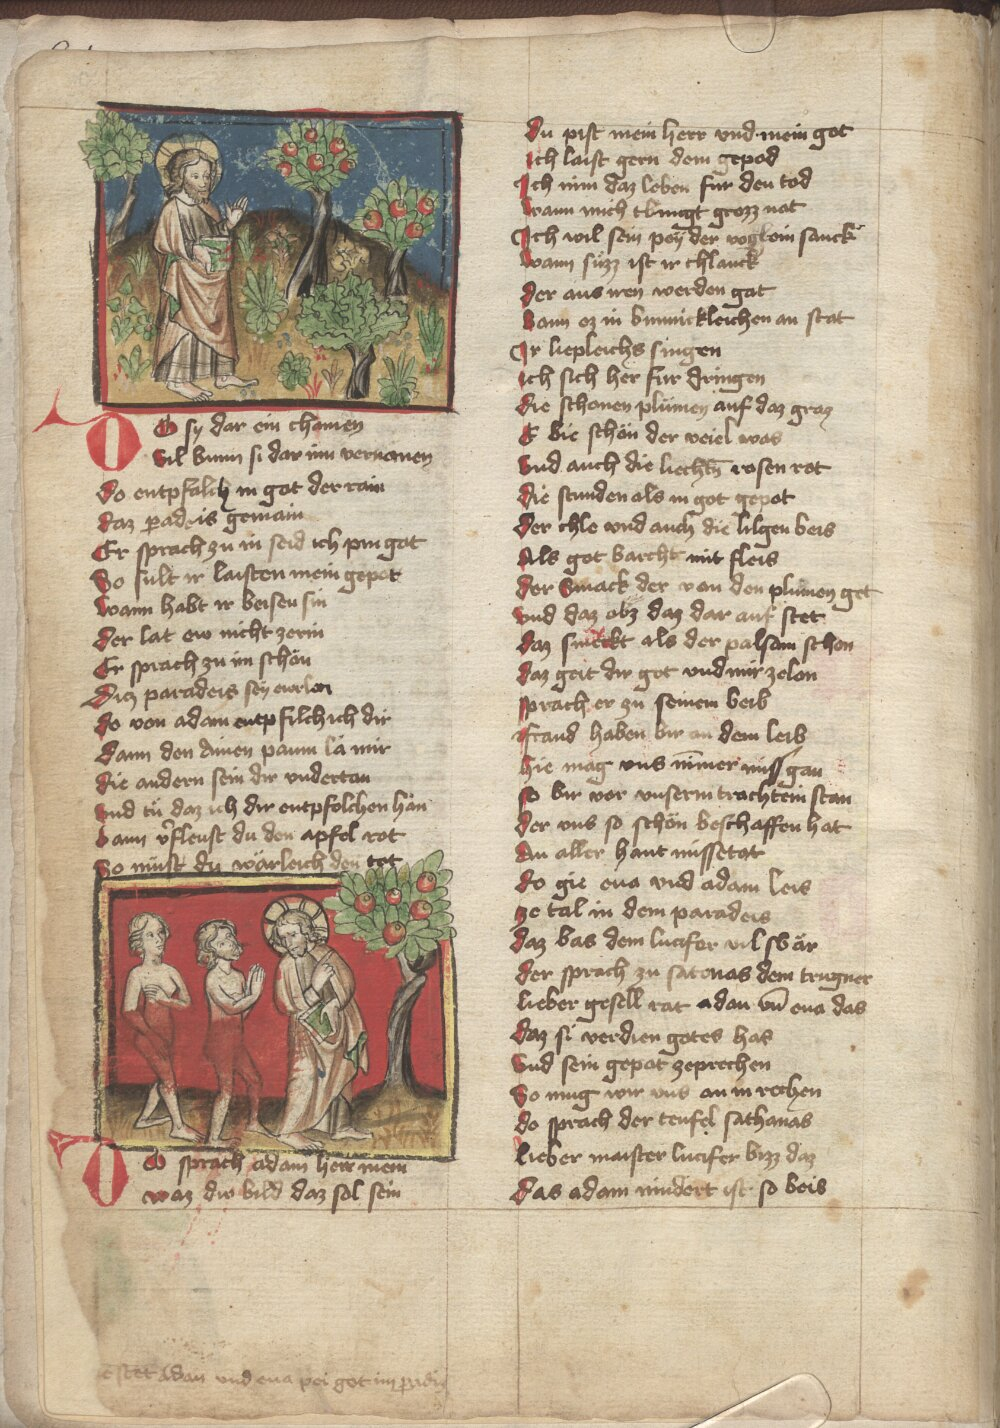 Do sy dar ein chamen
Vil bunn si dar inn vernamen
do entpfalch in got der rain
daz paradeis gemain
Er sprach zu in seid ich pin got
So sult ir laisten mein gepot
wann habt ir beisen sin
der lat ew nicht zerin
Er sprach zu im schön
diz paradeis sey ewr lon
do von adam entpfilch ich dir
dann den ainen paum la mir
die andern sein dir vndertan
vnd tu daz ich dir entpfolchen hän
bann v̓fleust du den apfel rot
So must du wärleich den tot
Do sprach adam herr mein
waz dw bild daz sol sein
du pist mein herr vnd mein got
ich laist gern dem gepod
Ich nim daz leben fur den tod
wann mich tbingt grozz not
Ich wil sein pey der voglein sanck
wann süzz ist ir chlanck
der aus iren werden gat
bann ez in bunnickleichen an stat
Ir liepleichs singen
ich sich her fur dringen
die schonen plümen auf daz graz
E bie schön der veiel was
vnd auch die liechtn̄ rosen rot
die stunden als in got gepot
der chle vnd auch die lilgen beis
Als got barcht mit fleis
der smack der von den plümen get
vnd daz obz daz dar auf stet
daz smeckt als der palsam schon
daz geit dir got vnd mir zelon
sprach er zu seinem beib
frawd haben bir an dem leib
hie mag vns nim̄er miss gan
so bir vor vnserm trachtein stan
der vns so schön beschaffen hat
An aller hant missetat
do gie eua vnd adam leis
ze tal in dem paradeis
daz bas dem lucifer vil sbär
der sprach zu satanas dem trugner
lieber gesell rat adan vn̄ eua das
daz si verdien gotes has
vnd sein gepot zeprechen
So mug wir vns an in rechen
do sprach der teufel sathanas
lieber maister lucifer bizz daz
das adam nindert ist so beis
stet Adan vnd eua pei got im paradis